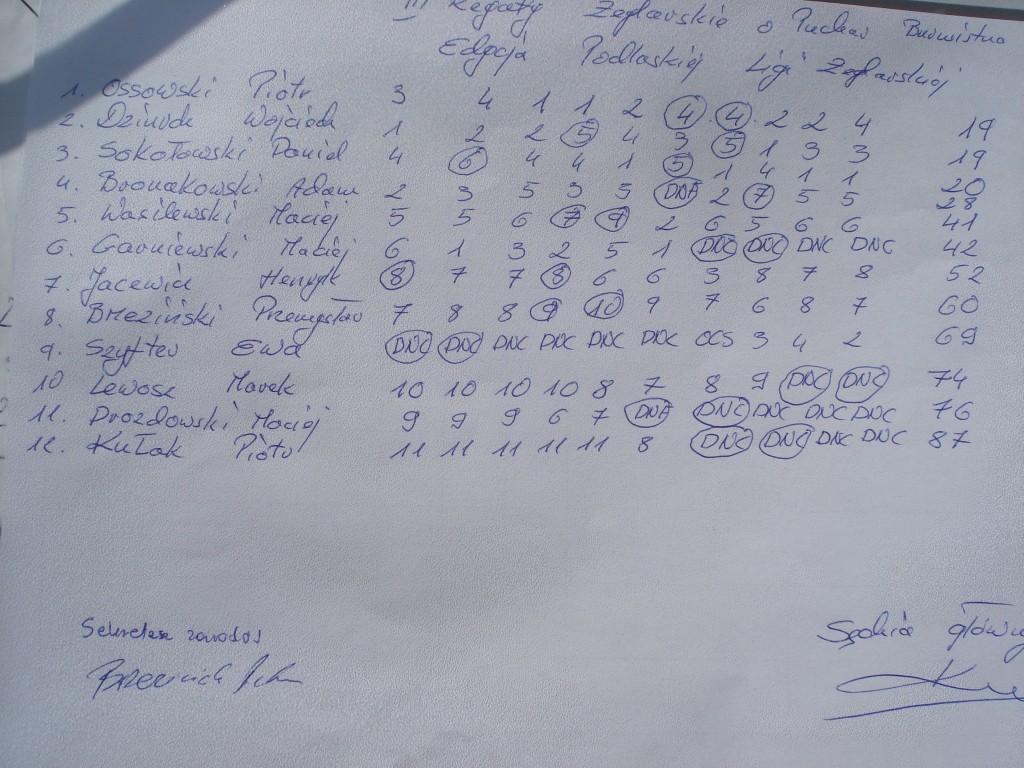 III Regaty Żeglarskie o Puchar Burmistrza
Edycja Podlaskiej Ligi Żeglarskiej
1. Ossowski Piotr 3 4 1 1 2 4 4 2 2 4 19
2. Dziuda Wojciech 1 2 2 5 4 3 5 1 3 3 19
3. Sokołowski Daniel 4 6 4 4 1 5 1 4 1 1 20
4. Adam 2 3 5 3 5 DNF 2 7 5 5 28
5. Wasilewski Maciej 5 5 6 7 9 2 6 5 6 6 41
6. Maciej 6 1 3 2 5 1 DNC DNC DNC DNC 42
7. Jacewicz Henryk 8 7 7 8 6 6 3 8 7 8 52
8. Brzeziński Przemysław 7 8 8 9 10 9 7 6 8 7 60
9. Szyfter Ewa DNC DNC DNC DNC DNC DNC OCS 3 4 2 69
10 Lewosz Marek 10 10 10 10 8 7 8 9 DNC DNC 74
11. Drozdowski Maciej 9 9 9 6 7 DNF DNC DNC DNC DNC 76
12. Kułak Piotr 11 11 11 11 11 8 DNC DNC DNC DNC 87
Sekretarz zawodów
Sędzia główny